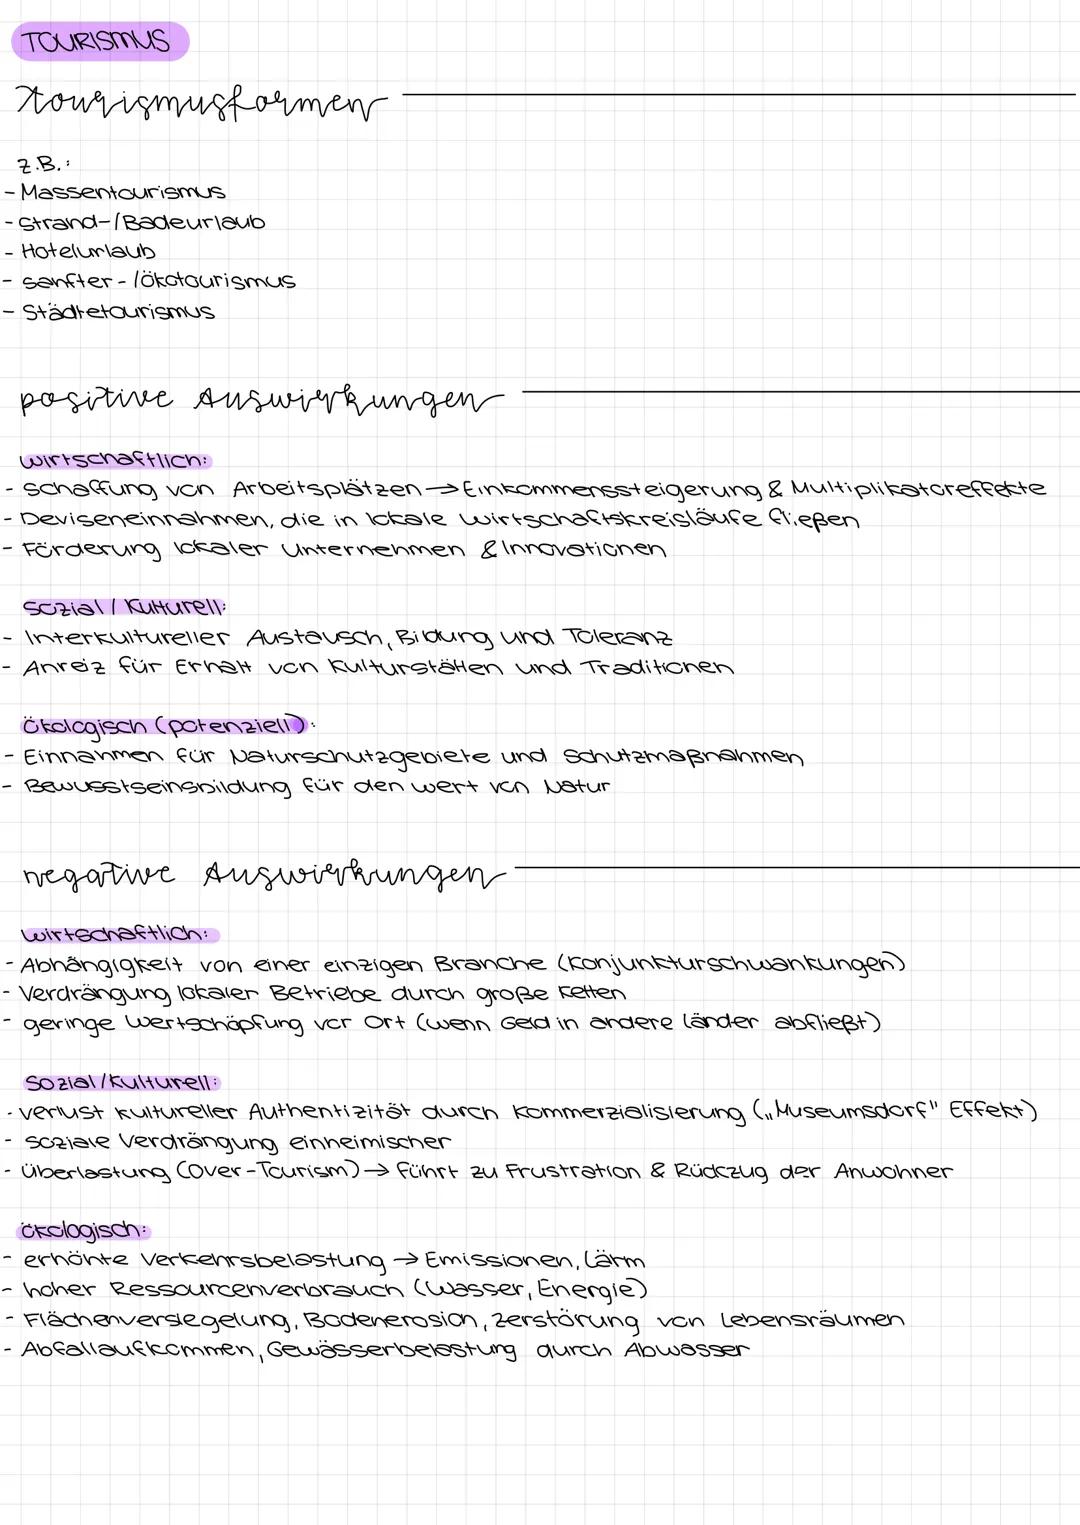 TOURISMUS
Tourismusformen
z.B.:
- Massentourismus
- Strand-/Badeurlaub
- Hotelurlaub
- sanfter-/Ökotourismus
- Städtetourismus
positive Auswirkungen
wirtschaftlich:
- Schaffung von Arbeitsplätzen → Einkommenssteigerung & Multiplikatoreffekte
- Deviseneinnahmen, die in lokale Wirtschaftskreisläufe fließen
- Förderung lokaler Unternehmen & Innovationen
sozial / kulturell:
- Interkultureller Austausch, Bildung und Toleranz
- Anreiz für Erhalt von Kulturstätten und Traditionen
Ökologisch (potenziell):
- Einnahmen für Naturschutzgebiete und Schutzmaßnahmen
- Bewusstseinsbildung für den Wert von Natur
negative Auswirkungen
wirtschaftlich:
- Abhängigkeit von einer einzigen Branche (Konjunkturschwankungen)
- Verdrängung lokaler Betriebe durch große Ketten
- geringe Wertschöpfung vor Ort (wenn Geld in andere Länder abfließt)
Sozial/kulturell:
- Verlust kultureller Authentizität durch Kommerzialisierung („Museumsdorf" Effekt)
- soziale Verdrängung einheimischer
- Überlastung (Over-Tourism) → führt zu Frustration & Rückzug der Anwohner
Ökologisch:
- erhöhte Verkehrsbelastung → Emissionen, Lärm
- hoher Ressourcenverbrauch (Wasser, Energie)
- Flächenversiegelung, Bodenerosion, Zerstörung von Lebensräumen
- Abfallaufkommen, Gewässerbelastung durch Abwasser